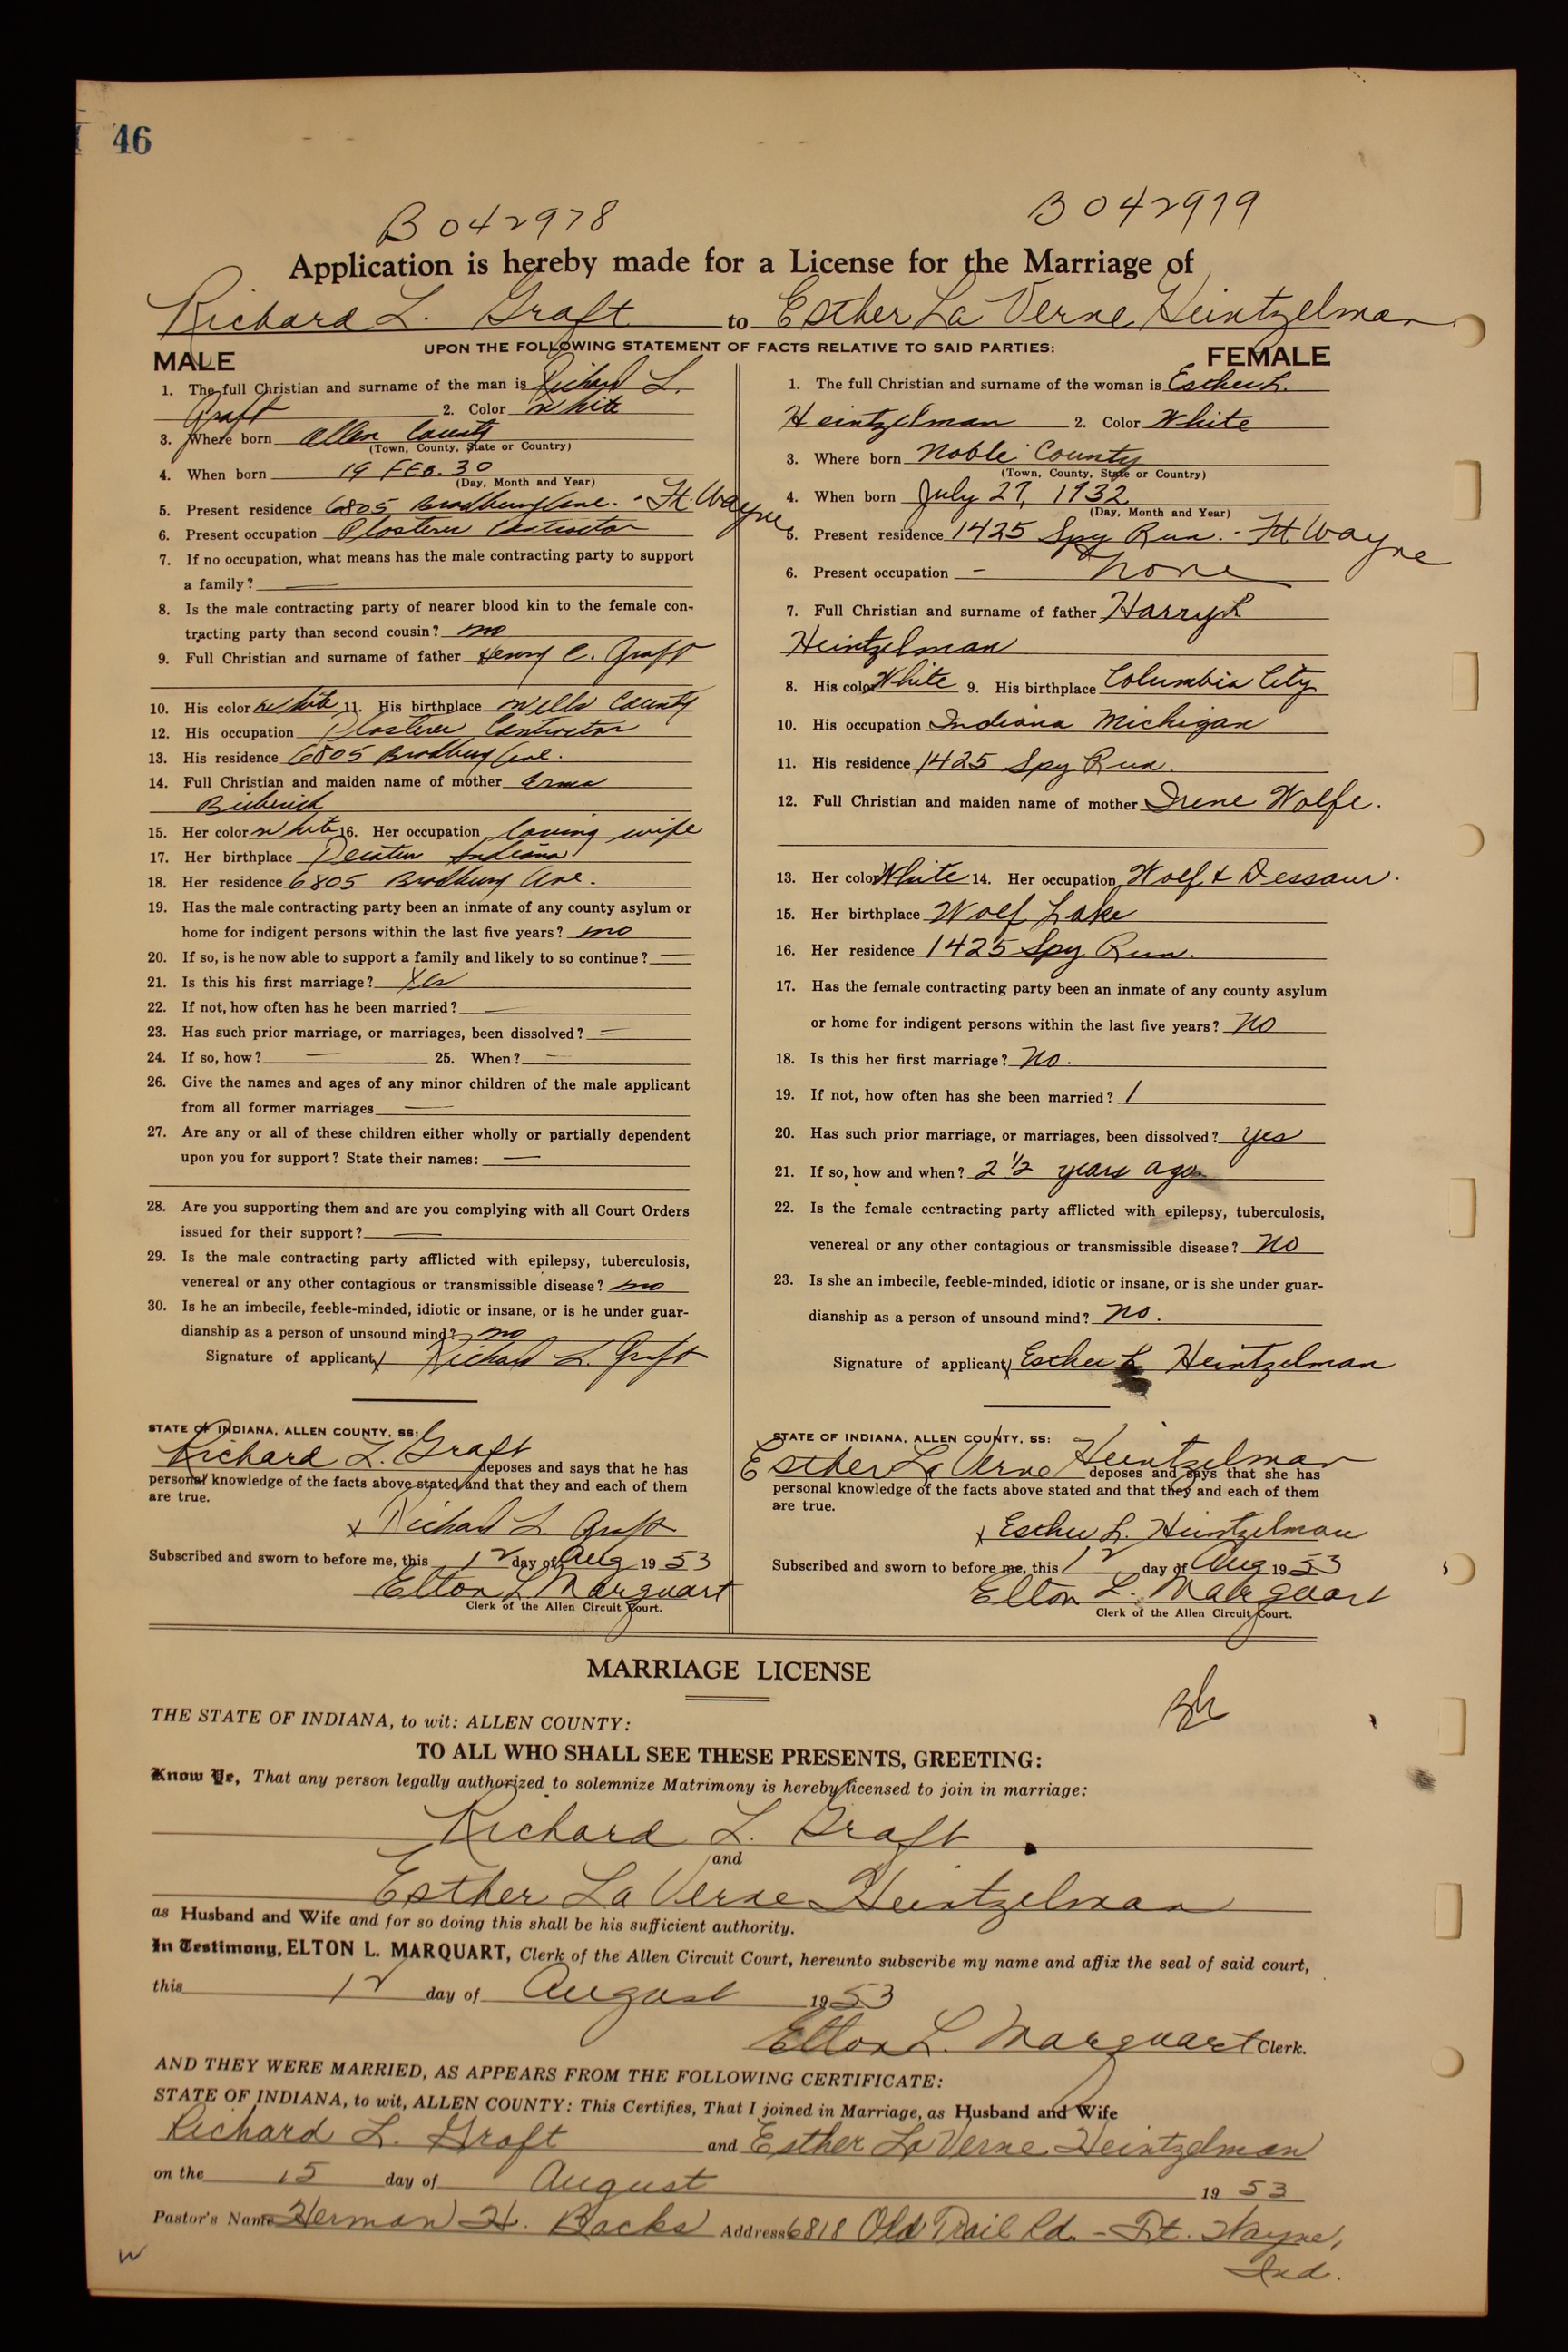 46
B 042978
B 042979
Application is hereby made for a License for the Marriage of
Richard L. Graft to Esther La Verne Heintzelman
UPON THE FOLLOWING STATEMENT OF FACTS RELATIVE TO SAID PARTIES:
MALE
1. The full Christian and surname of the man is Richard L.
Graft 2. Color White
3. Where born Allen County
(Town, County, State or Country)
4. When born 19 FEB. 30
(Day, Month and Year)
5. Present residence 6805 Bradbury Ave. - Ft. Wayne
6. Present occupation Plasterer Contractor
7. If no occupation, what means has the male contracting party to support
a family? —
8. Is the male contracting party of nearer blood kin to the female con-
tracting party than second cousin? no
9. Full Christian and surname of father Henry C. Graft
10. His color white 11. His birthplace Wells County
12. His occupation Plasterer Contractor
13. His residence 6805 Bradbury Ave.
14. Full Christian and maiden name of mother Erma
15. Her color white 16. Her occupation loving wife
17. Her birthplace Decatur Indiana
18. Her residence 6805 Bradbury Ave.
19. Has the male contracting party been an inmate of any county asylum or
home for indigent persons within the last five years? no
20. If so, is he now able to support a family and likely to so continue? —
21. Is this his first marriage? Yes
22. If not, how often has he been married? —
23. Has such prior marriage, or marriages, been dissolved? —
24. If so, how? — 25. When? —
26. Give the names and ages of any minor children of the male applicant
from all former marriages —
27. Are any or all of these children either wholly or partially dependent
upon you for support? State their names: —
28. Are you supporting them and are you complying with all Court Orders
issued for their support? —
29. Is the male contracting party afflicted with epilepsy, tuberculosis,
venereal or any other contagious or transmissible disease? no
30. Is he an imbecile, feeble-minded, idiotic or insane, or is he under guar-
dianship as a person of unsound mind? no
Signature of applicant Richard L. Graft
STATE OF INDIANA, ALLEN COUNTY, SS:
Richard L. Graft deposes and says that he has
personal knowledge of the facts above stated and that they and each of them
are true.
x Richard L. Graft
Subscribed and sworn to before me, this 12 day of Aug 19 53
Elton L. Marquart
Clerk of the Allen Circuit Court.
FEMALE
1. The full Christian and surname of the woman is Esther L.
Heintzelman 2. Color White
3. Where born Noble County
(Town, County, State or Country)
4. When born July 27, 1932
(Day, Month and Year)
5. Present residence 1425 Spy Run. - Ft Wayne
6. Present occupation - none
7. Full Christian and surname of father Harry L
Heintzelman
8. His color White 9. His birthplace Columbia City
10. His occupation Indiana Michigan
11. His residence 1425 Spy Run.
12. Full Christian and maiden name of mother Irene Wolfe.
13. Her color White 14. Her occupation Wolf & Dessaur.
15. Her birthplace Wolf Lake
16. Her residence 1425 Spy Run.
17. Has the female contracting party been an inmate of any county asylum
or home for indigent persons within the last five years? No
18. Is this her first marriage? No.
19. If not, how often has she been married? 1
20. Has such prior marriage, or marriages, been dissolved? Yes
21. If so, how and when? 2 1/2 years ago
22. Is the female contracting party afflicted with epilepsy, tuberculosis,
venereal or any other contagious or transmissible disease? No
23. Is she an imbecile, feeble-minded, idiotic or insane, or is she under guar-
dianship as a person of unsound mind? No.
Signature of applicant Esther L Heintzelman
STATE OF INDIANA, ALLEN COUNTY, SS:
Esther La Verne Heintzelman deposes and says that she has
personal knowledge of the facts above stated and that they and each of them
are true.
x Esther L. Heintzelman
Subscribed and sworn to before me, this 12 day of Aug 19 53
Elton L. Marquart
Clerk of the Allen Circuit Court.
MARRIAGE LICENSE
THE STATE OF INDIANA, to wit: ALLEN COUNTY:
TO ALL WHO SHALL SEE THESE PRESENTS, GREETING:
Know Ye, That any person legally authorized to solemnize Matrimony is hereby licensed to join in marriage:
Richard L. Graft
and
Esther La Verne Heintzelman
as Husband and Wife and for so doing this shall be his sufficient authority.
In Testimony, ELTON L. MARQUART, Clerk of the Allen Circuit Court, hereunto subscribe my name and affix the seal of said court,
this 12 day of August 19 53
Elton L. Marquart Clerk.
AND THEY WERE MARRIED, AS APPEARS FROM THE FOLLOWING CERTIFICATE:
STATE OF INDIANA, to wit, ALLEN COUNTY: This Certifies, That I joined in Marriage, as Husband and Wife
Richard L. Graft and Esther La Verne Heintzelman
on the 15 day of August 19 53
Pastor's Name Herman H. Backs Address 6818 Old Trail Rd. - Ft. Wayne,
Ind.